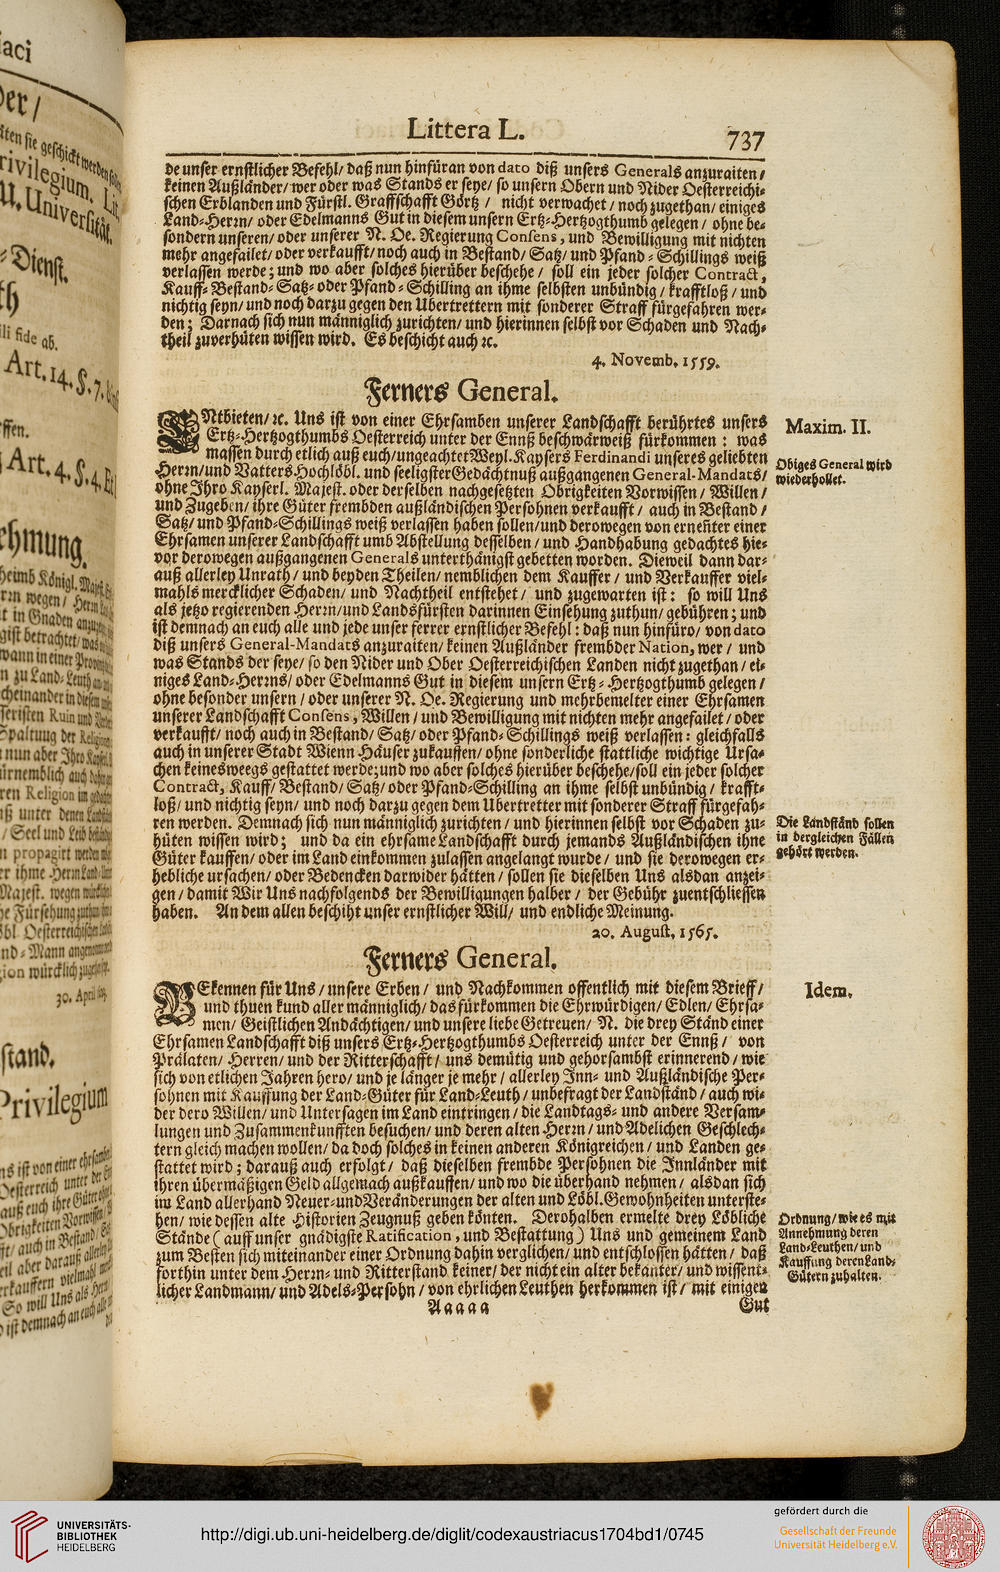 Littera L. 737
de unser ernstlicher Befehl/ daß nun hinfüran von dato diß unsers Generals anzuraiten/
keinen Außländer/ wer oder was Stands er seye/ so unsern Obern und Nider Oesterreichi-
schen Erblanden und Fürstl. Graffschafft Görtz / nicht verwachet / noch zugethan/ einiges
Land-Herzn/ oder Edelmanns Gut in diesem unsern Ertz-Hertzogthumb gelegen / ohne be-
sondern unseren/ oder unserer N. Oe. Regierung Consens, und Bewilligung mit nichten
mehr angefailet/ oder verkaufft/ noch auch in Bestand/ Satz/ und Pfand-Schillings weiß
verlassen werde; und wo aber solches hierüber beschehe / soll ein jeder solcher Contract,
Kauff- Bestand- Satz- oder Pfand-Schilling an ihme selbsten unbündig / krafftloß / und
nichtig seyn/ und noch darzu gegen den Ubertrettern mit sonderer Straff fürgefahren wer-
den; Darnach sich nun männiglich zurichten/ und hierinnen selbst vor Schaden und Nach-
theil zuverhüten wissen wird. Es beschicht auch ꝛc.
4. Novemb. 1559.
Ferners General.
ENtbieten/ ꝛc. Uns ist von einer Ehrsamben unserer Landschafft berührtes unsers
Ertz-Hertzogthumbs Oesterreich unter der Ennß beschwärweiß fürkommen : was
massen durch etlich auß euch/ ungeachtet Weyl. Kaysers Ferdinandi unseres geliebten
Herzn/ und Vatters Hochlöbl. und seeligster Gedächtnuß außgangenen General-Mandats/
ohne Ihro Kayserl. Majest. oder derselben nachgesetzten Obrigkeiten Vorwissen / Willen /
und Zugeben/ ihre Güter frembden außländischen Persohnen verkaufft / auch in Bestand /
Satz/ und Pfand-Schillings weiß verlassen haben sollen/ und derowegen von erneñter einer
Ehrsamen unserer Landschafft umb Abstellung desselben / und Handhabung gedachtes hie-
vor derowegen außgangenen Generals unterthänigst gebetten worden. Dieweil dann dar-
auß allerley Unrath / und beyden Theilen/ nemblichen dem Kauffer / und Verkauffer viel-
mahls mercklicher Schaden/ und Nachtheil entstehet / und zugewarten ist : so will Uns
als jetzo regierenden Herzn/ und Landsfürsten darinnen Einsehung zuthun/ gebühren ; und
ist demnach an euch alle und jede unser ferrer ernstlicher Befehl : daß nun hinfüro/ von dato
diß unsers General-Mandats anzuraiten/ keinen Außländer frembder Nation, wer / und
was Stands der seye/ so den Nider und Ober Oesterreichischen Landen nicht zugethan / ei-
niges Land-Herzns/ oder Edelmanns Gut in diesem unsern Ertz-Hertzogthumb gelegen /
ohne besonder unsern / oder unserer N. Oe. Regierung und mehrbemelter einer Ehrsamen
unserer Landschafft Consens, Willen / und Bewilligung mit nichten mehr angefailet / oder
verkaufft/ noch auch in Bestand/ Satz/ oder Pfand-Schillings weiß verlassen : gleichfalls
auch in unserer Stadt Wienn Häuser zukauffen/ ohne sonderliche stattliche wichtige Ursa-
chen keineswegs gestattet werde; und wo aber solches hierüber beschehe/ soll ein jeder solcher
Contract, Kauff/ Bestand/ Satz/ oder Pfand-Schilling an ihme selbst unbündig / krafft-
loß/ und nichtig seyn/ und noch darzu gegen dem Ubertretter mit sonderer Straff fürgefah-
ren werden. Demnach sich nun männiglich zurichten / und hierinnen selbst vor Schaden zu-
hüten wissen wird ; und da ein ehrsame Landschafft durch jemands Außländischen ihne
Güter kauffen/ oder im Land einkommen zulassen angelangt wurde / und sie derowegen er-
hebliche ursachen/ oder Bedencken darwider hätten / sollen sie dieselben Uns alsdan anzei-
gen / damit Wir Uns nachfolgends der Bewilligungen halber / der Gebühr zuentschliessen
haben. An dem allen beschiht unser ernstlicher Will/ und endliche Meinung.
20. August. 1565.
Ferners General.
BEkennen für Uns / unsere Erben / und Nachkommen offentlich mit diesem Brieff /
und thuen kund aller männiglich/ das fürkommen die Ehrwürdigen/ Edlen/ Ehrsa-
men/ Geistlichen Andächtigen/ und unsere liebe Getreuen/ N. die drey Ständ einer
Ehrsamen Landschafft diß unsers Ertz-Hertzogthumbs Oesterreich unter der Ennß / von
Prälaten/ Herren/ und der Ritterschafft / uns demütig und gehorsambst erinnerend / wie
sich von etlichen Jahren hero/ und je länger je mehr / allerley Inn- und Außländische Per-
sohnen mit Kauffung der Land-Güter für Land-Leuth / unbefragt der Landständ / auch wi-
der dero Willen/ und Untersagen im Land eintringen / die Landtags- und andere Versam-
lungen und Zusammenkunfften besuchen/ und deren alten Herzn / und Adelichen Geschlech-
tern gleich machen wollen/ da doch solches in keinen anderen Königreichen / und Landen ge-
stattet wird ; darauß auch erfolgt / daß dieselben frembde Persohnen die Innländer mit
ihren übermäßigen Geld allgemach außkauffen/ und wo die überhand nehmen / alsdan sich
im Land allerhand Neuer- und Veränderungen der alten und Löbl. Gewohnheiten unterste-
hen/ wie dessen alte Historien Zeugnuß geben könten. Derohalben ermelte drey Löbliche
Stände ( auff unser gnädigste Ratification, und Bestattung ) Uns und gemeinem Land
zum Besten sich miteinander einer Ordnung dahin verglichen/ und entschlossen hätten / daß
forthin unter dem Herzn- und Ritterstand keiner/ der nicht ein alter bekanter/ und wissent-
licher Landmann/ und Adels-Persohn / von ehrlichen Leuthen herkommen ist / mit einigen
Aaaaa Gut
Maxim. II.
Obiges General wird
wiederhollet.
Die Landständ sollen
in dergleichen Fällen
gehört werden.
Idem.
Ordnung/ wie es mit
Annehmung deren
Land-Leuthen/ und
Kauffung deren Land-
Gütern zuhalten.
iaci
Der /
rivilegium. Lit.
U. Universität.
Dienst.
th
ili fide ab.
Art. 14. §. 7.
ffen.
Art. 4. §. 4. Et
ehmung.
30. April
stand.
Privilegium
UNIVERSITÄTS-
BIBLIOTHEK
HEIDELBERG
http://digi.ub.uni-heidelberg.de/diglit/codexaustriacus1704bd1/0745
gefördert durch die
Gesellschaft der Freunde
Universität Heidelberg e.V.